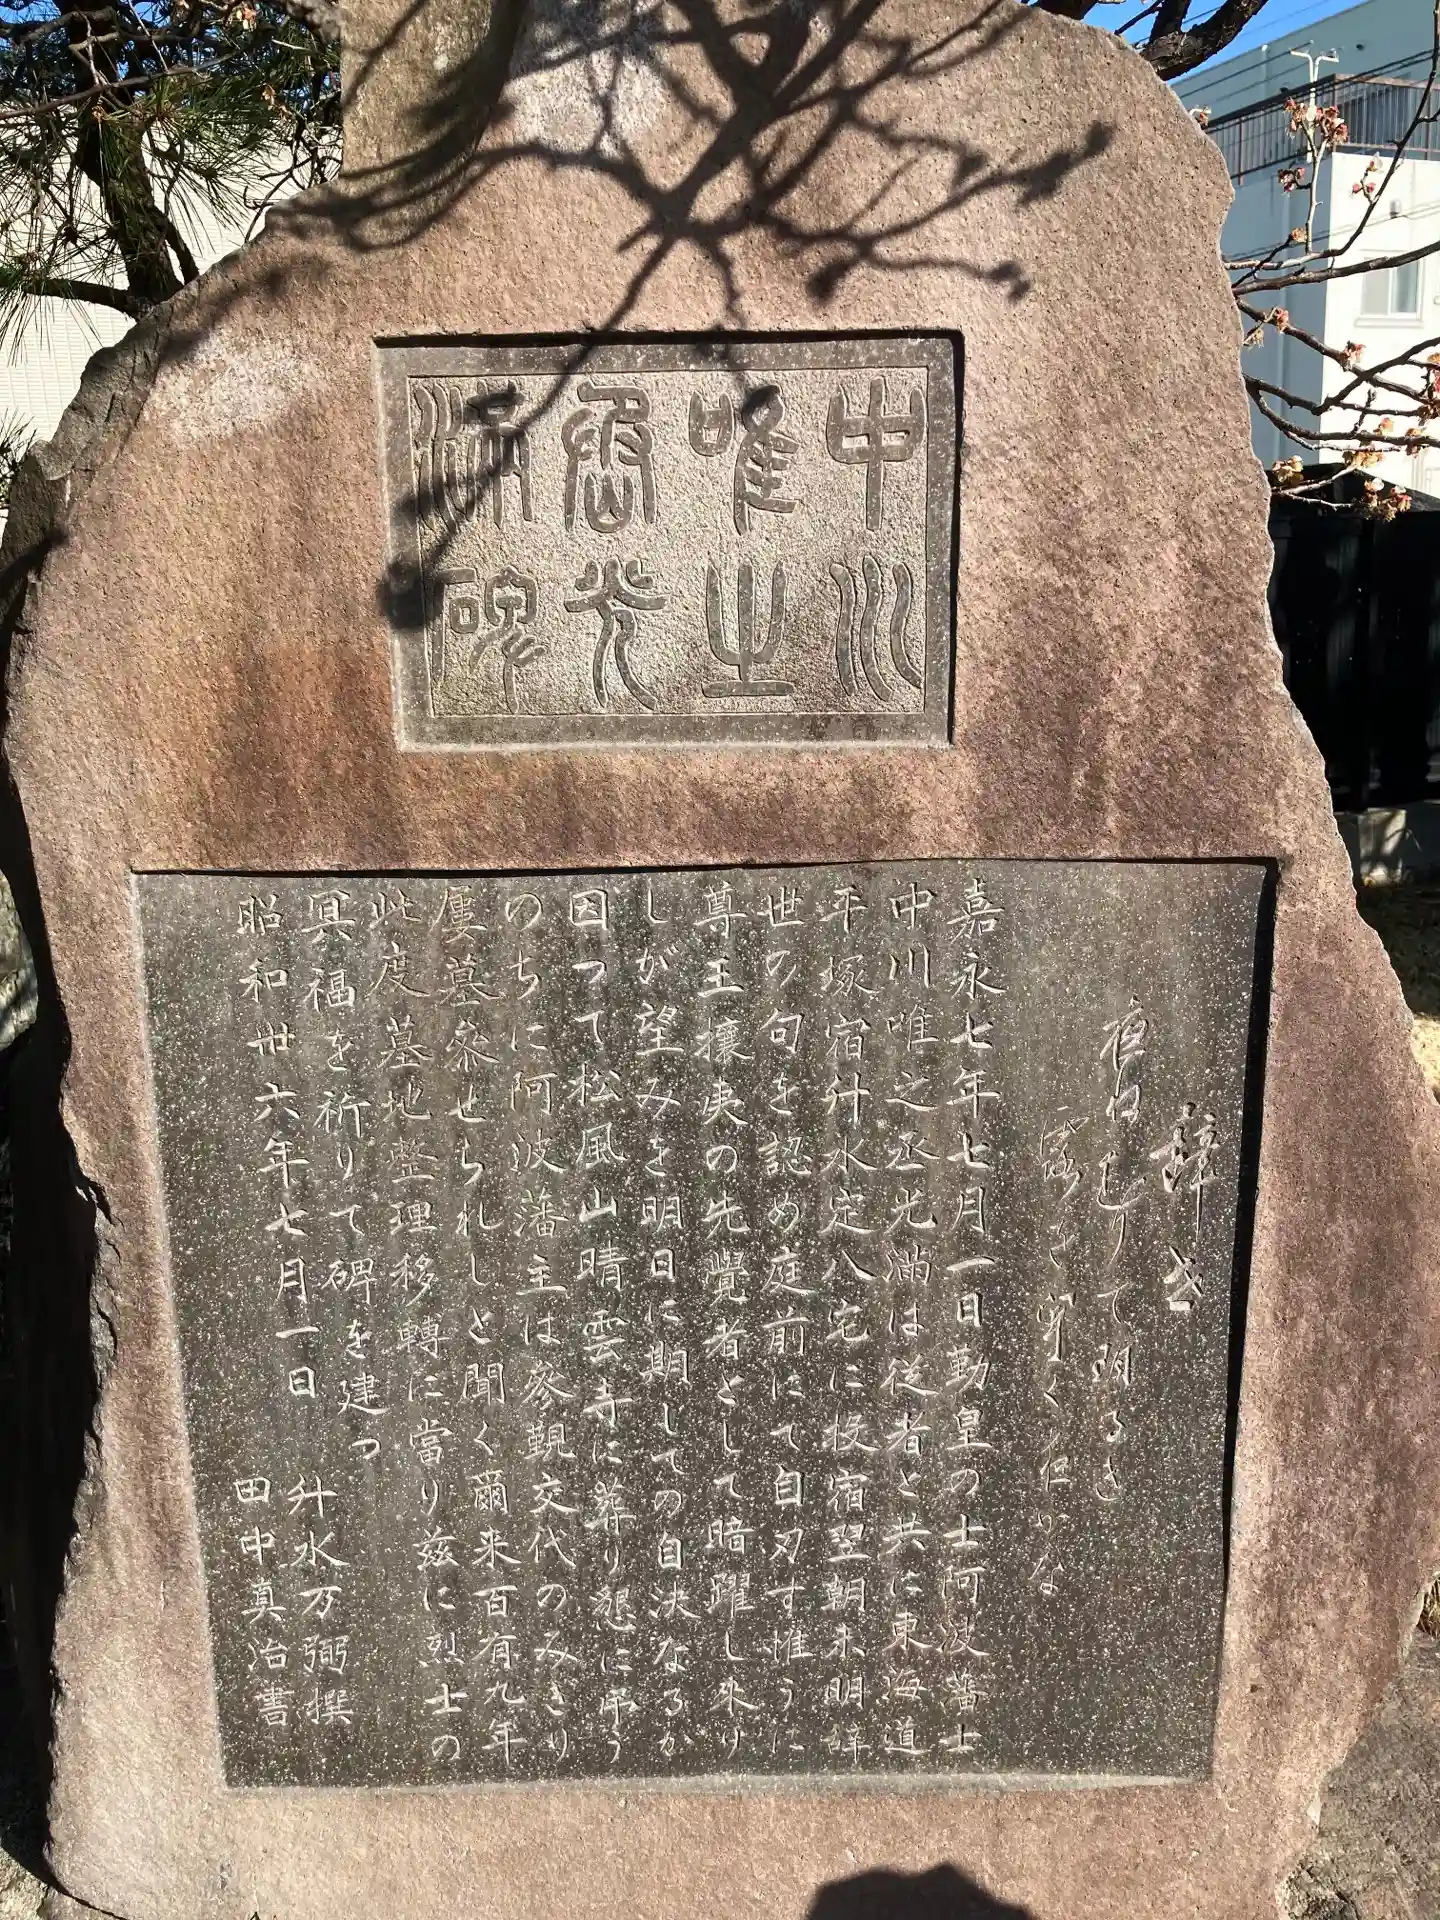 中川
唯之
丞光
満碑
辞世
夜はしりて明るき
露を
嘉永七年七月一日勤皇の士阿波藩士
中川唯之丞光満は従者と共に東海道
平塚宿升水定八宅に投宿翌朝未明辞
世の句を認め庭前にて自刃す惟うに
尊王攘夷の先覺者として暗躍し来り
しが望みを明日に期しての自決なるか
因って松風山晴雲寺に葬り懇に弔う
のちに阿波藩主は参覲交代のみきり
屢墓参せられしと聞く爾来百有九年
此度墓地整理移轉に當り茲に烈士の
冥福を祈りて碑を建つ
昭和卅六年七月一日
升水万弼撰
田中真治書